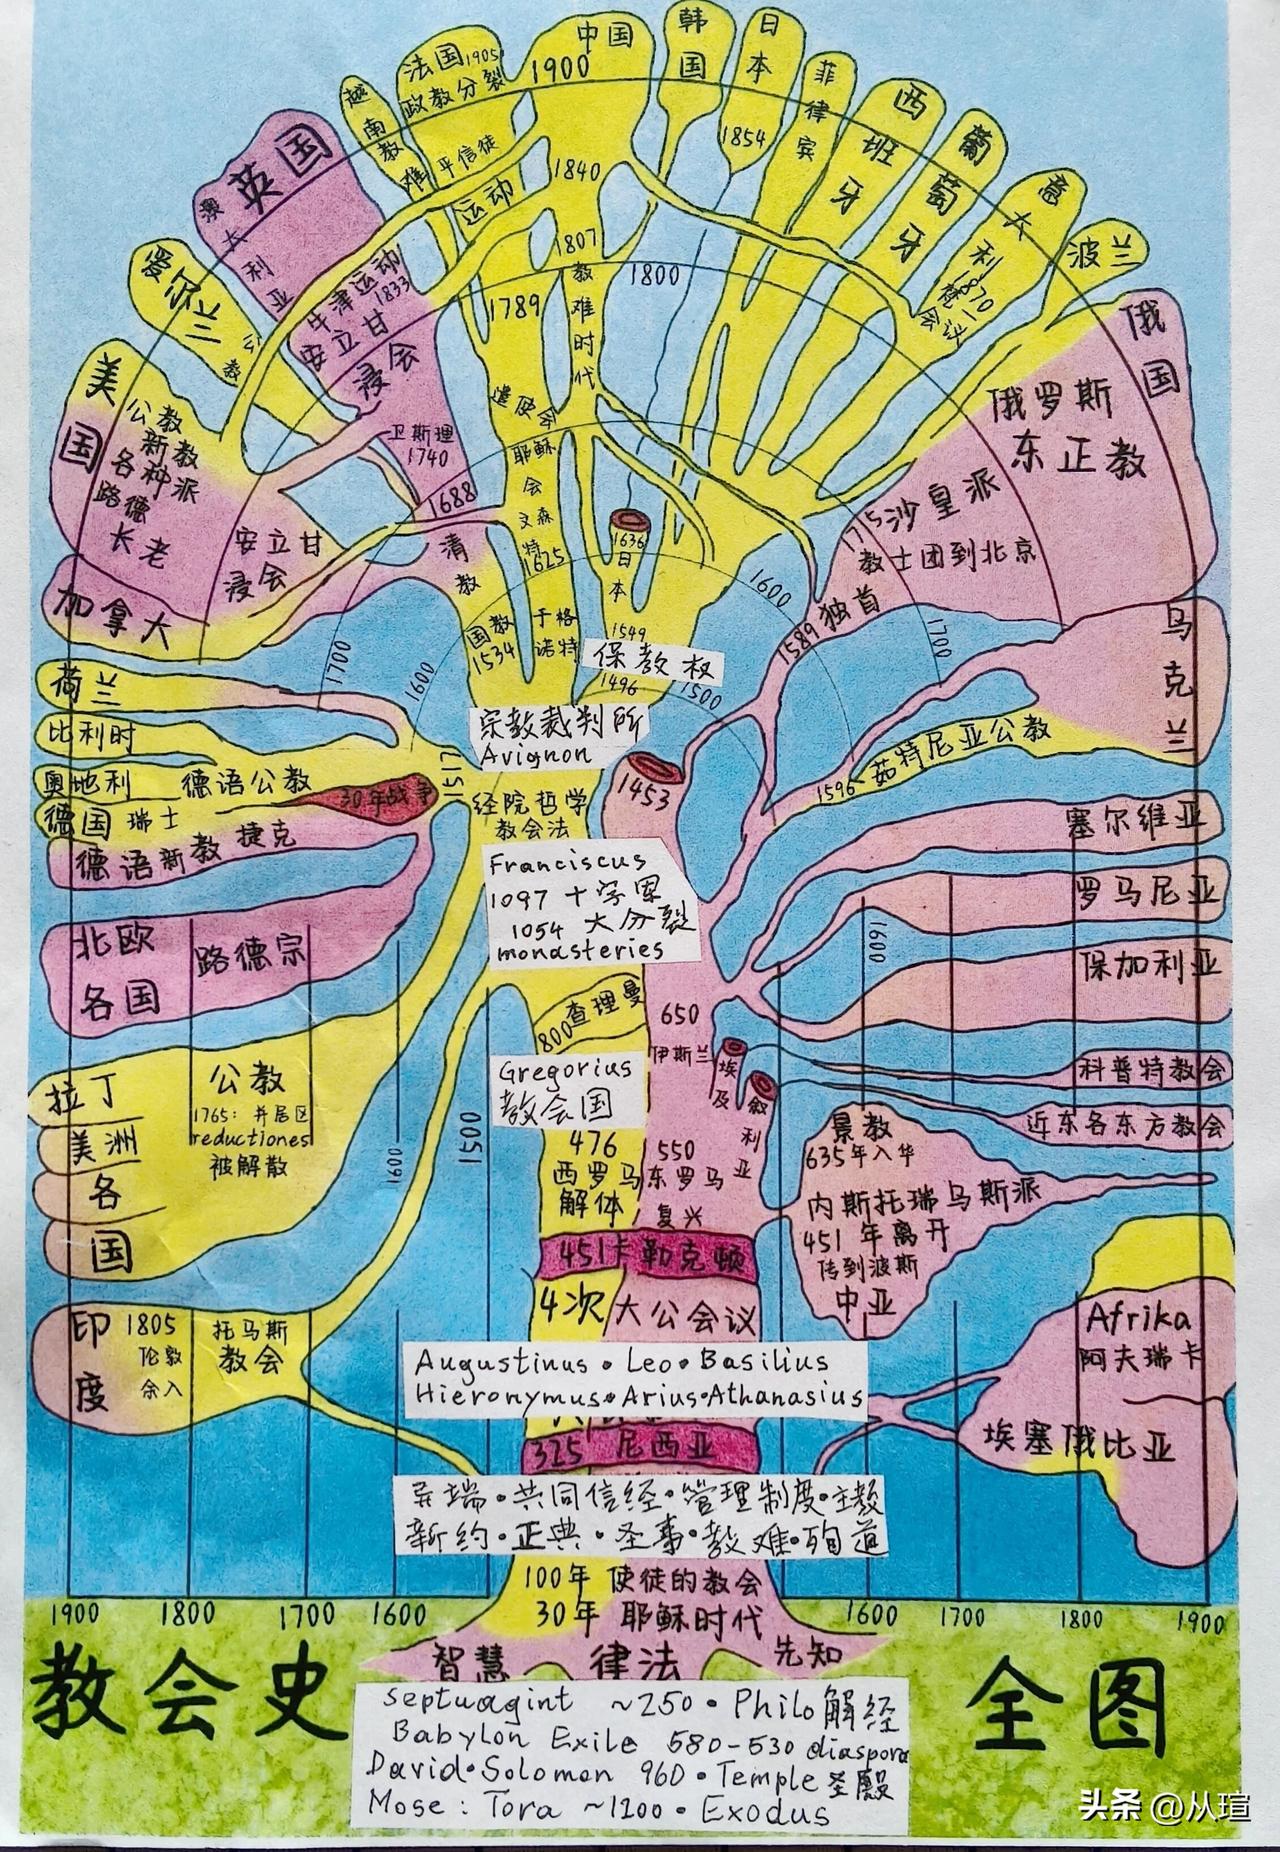 韩国
日本
1854
中国
1900
法国1905
政教分裂
越南教难
菲律宾
西班牙
葡萄牙
意大利1870梵一会议
波兰
平信徒
运动
1840
1807
教难时代
1800
1789
英国
澳大利亚
牛津运动
1833
安立甘
浸会
卫斯理
1740
1688
爱尔兰
公教
美国
公教
新教
各种派
路德
长老
安立甘
浸会
加拿大
清教
遣使会
耶稣会
文森特
1625
1636
日本
1549
国教
1534
于格诺特
保教权
1496
1500
1600
1700
俄国
俄罗斯
东正教
1715沙皇派
教士团到北京
1589独首
乌克兰
1596茹特尼亚公教
1700
1600
荷兰
比利时
奥地利 德语公教
德国 瑞士
30年战争
德语新教 捷克
1517
宗教裁判所
Avignon
经院哲学
教会法
1453
Franciscus
1097 十字军
1054 大分裂
monasteries
塞尔维亚
罗马尼亚
保加利亚
1600
科普特教会
近东各东方教会
北欧各国
路德宗
拉丁美洲各国
公教
1765: 并居区
reductiones
被解散
1600
1500
800查理曼
650
伊斯兰
埃及
叙利亚
Gregorius
教会国
476
西罗马
解体
550
东罗马
复兴
景教
635年入华
内斯托瑞乌斯派
451年离开
传到波斯
中亚
451卡勒克顿
4次大公会议
Augustinus • Leo • Basilius
Hieronymus • Arius • Athanasius
325 尼西亚
印度
1805
伦敦
余入
托马斯
教会
Afrika
阿夫瑞卡
埃塞俄比亚
异端•共同信经•管理制度•主教
新约•正典•圣事•教难•殉道
100年 使徒的教会
30年 耶稣时代
1900 1800 1700 1600
1600 1700 1800 1900
智慧 律法 先知
教会史 全图
Septuagint ~250 • Philo解经
Babylon Exile 580-530 diaspora
David • Solomon 960 • Temple圣殿
Mose: Tora ~1200 • Exodus
头条 @从瑄